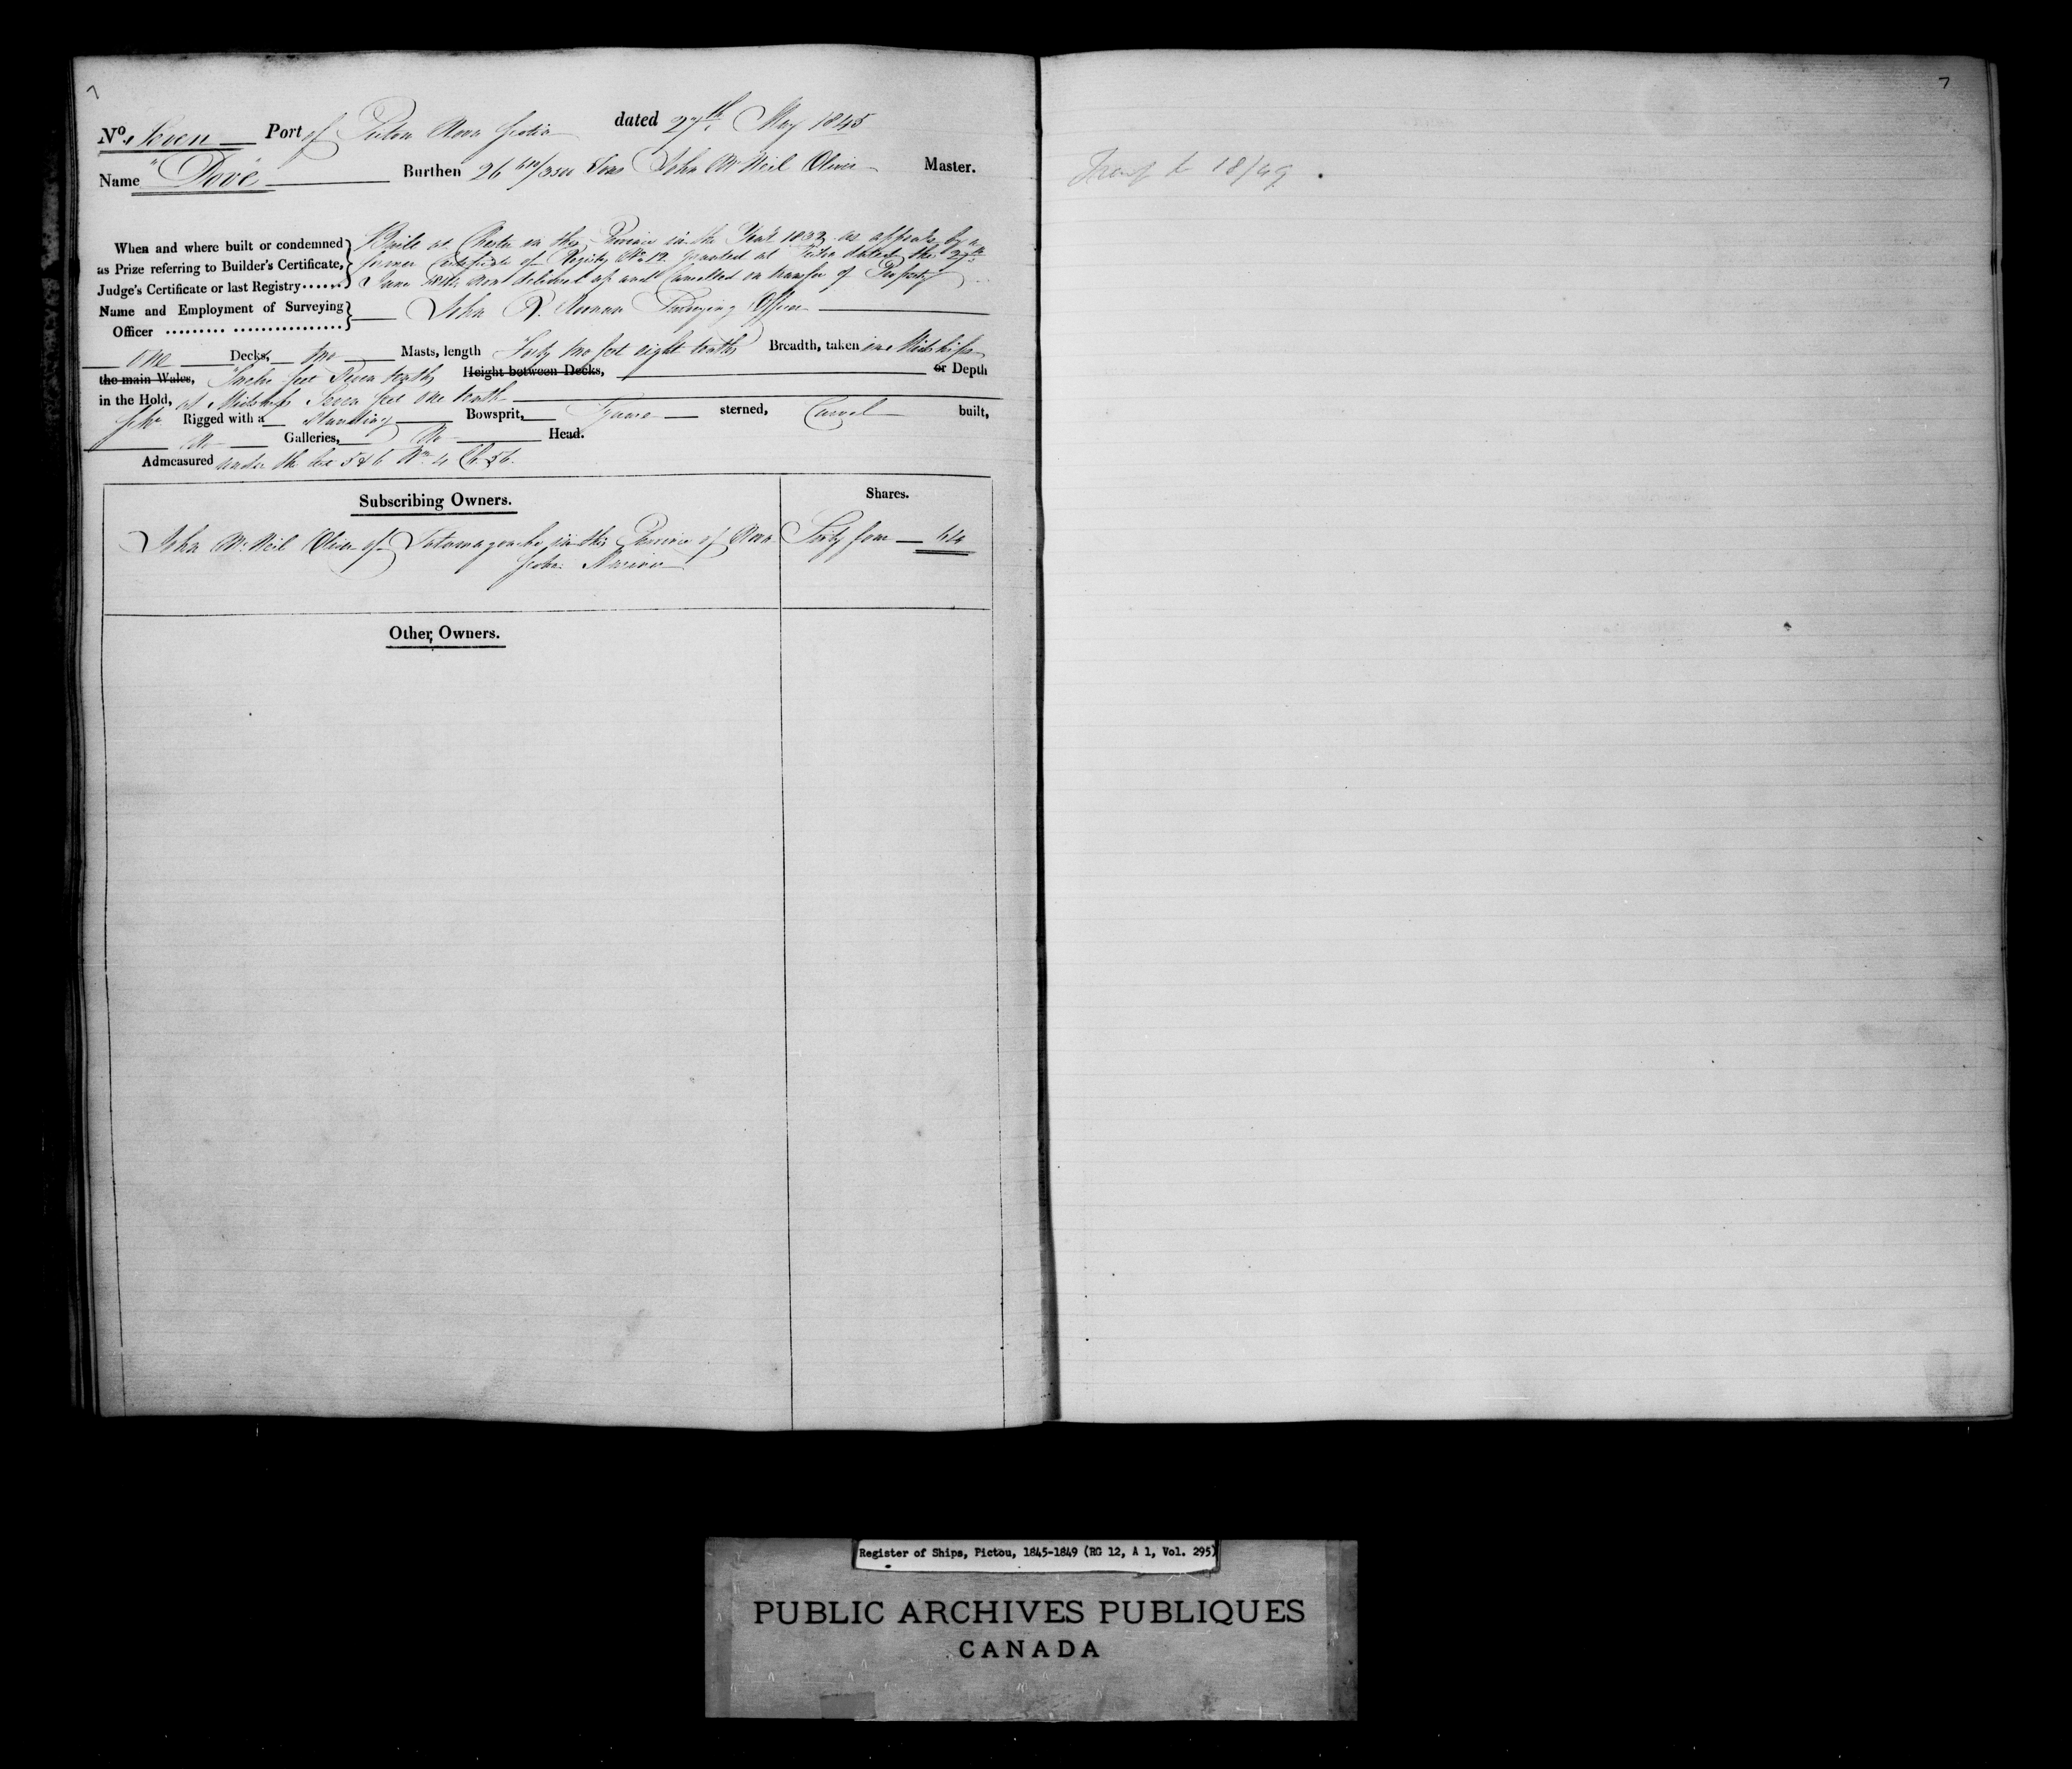 7
No. Seven Port of Pictou Nova Scotia dated 27th May 1845
Name "Dove" Burthen 26 /3500 Tons John McNeil Oliver Master.
When and where built or condemned as Prize referring to Builder's Certificate, Judge's Certificate or last Registry......
Built at Chester in this Province in the Year 1832 as appears by a
former Certificate of Registry No 12. granted at Pictou dated the 27th
June now delivered up and Cancelled on transfer of Property
Name and Employment of Surveying Officer ......... ................
John R. Noonan Surveying Officer
one Decks, two Masts, length Forty two feet eight tenths Breadth, taken in Midships
the main Wales, Twelve feet Seven tenths Height between Decks, or Depth
in the Hold, at Midships Seven feet one tenth
Schr Rigged with a Standing Bowsprit, Square sterned, Carvel built,
No Galleries, No Head.
Admeasured under the Act 5 & 6 Wm 4 Ch. 56.
Subscribing Owners. Shares.
John McNeil Oliver of Tatamagouche in this Province of Nova Sixty four 64
Scotia Mariner
Other, Owners.
7
Transf to 18/49.
Register of Ships, Pictou, 1845-1849 (RG 12, A 1, Vol. 295)
PUBLIC ARCHIVES PUBLIQUES
CANADA